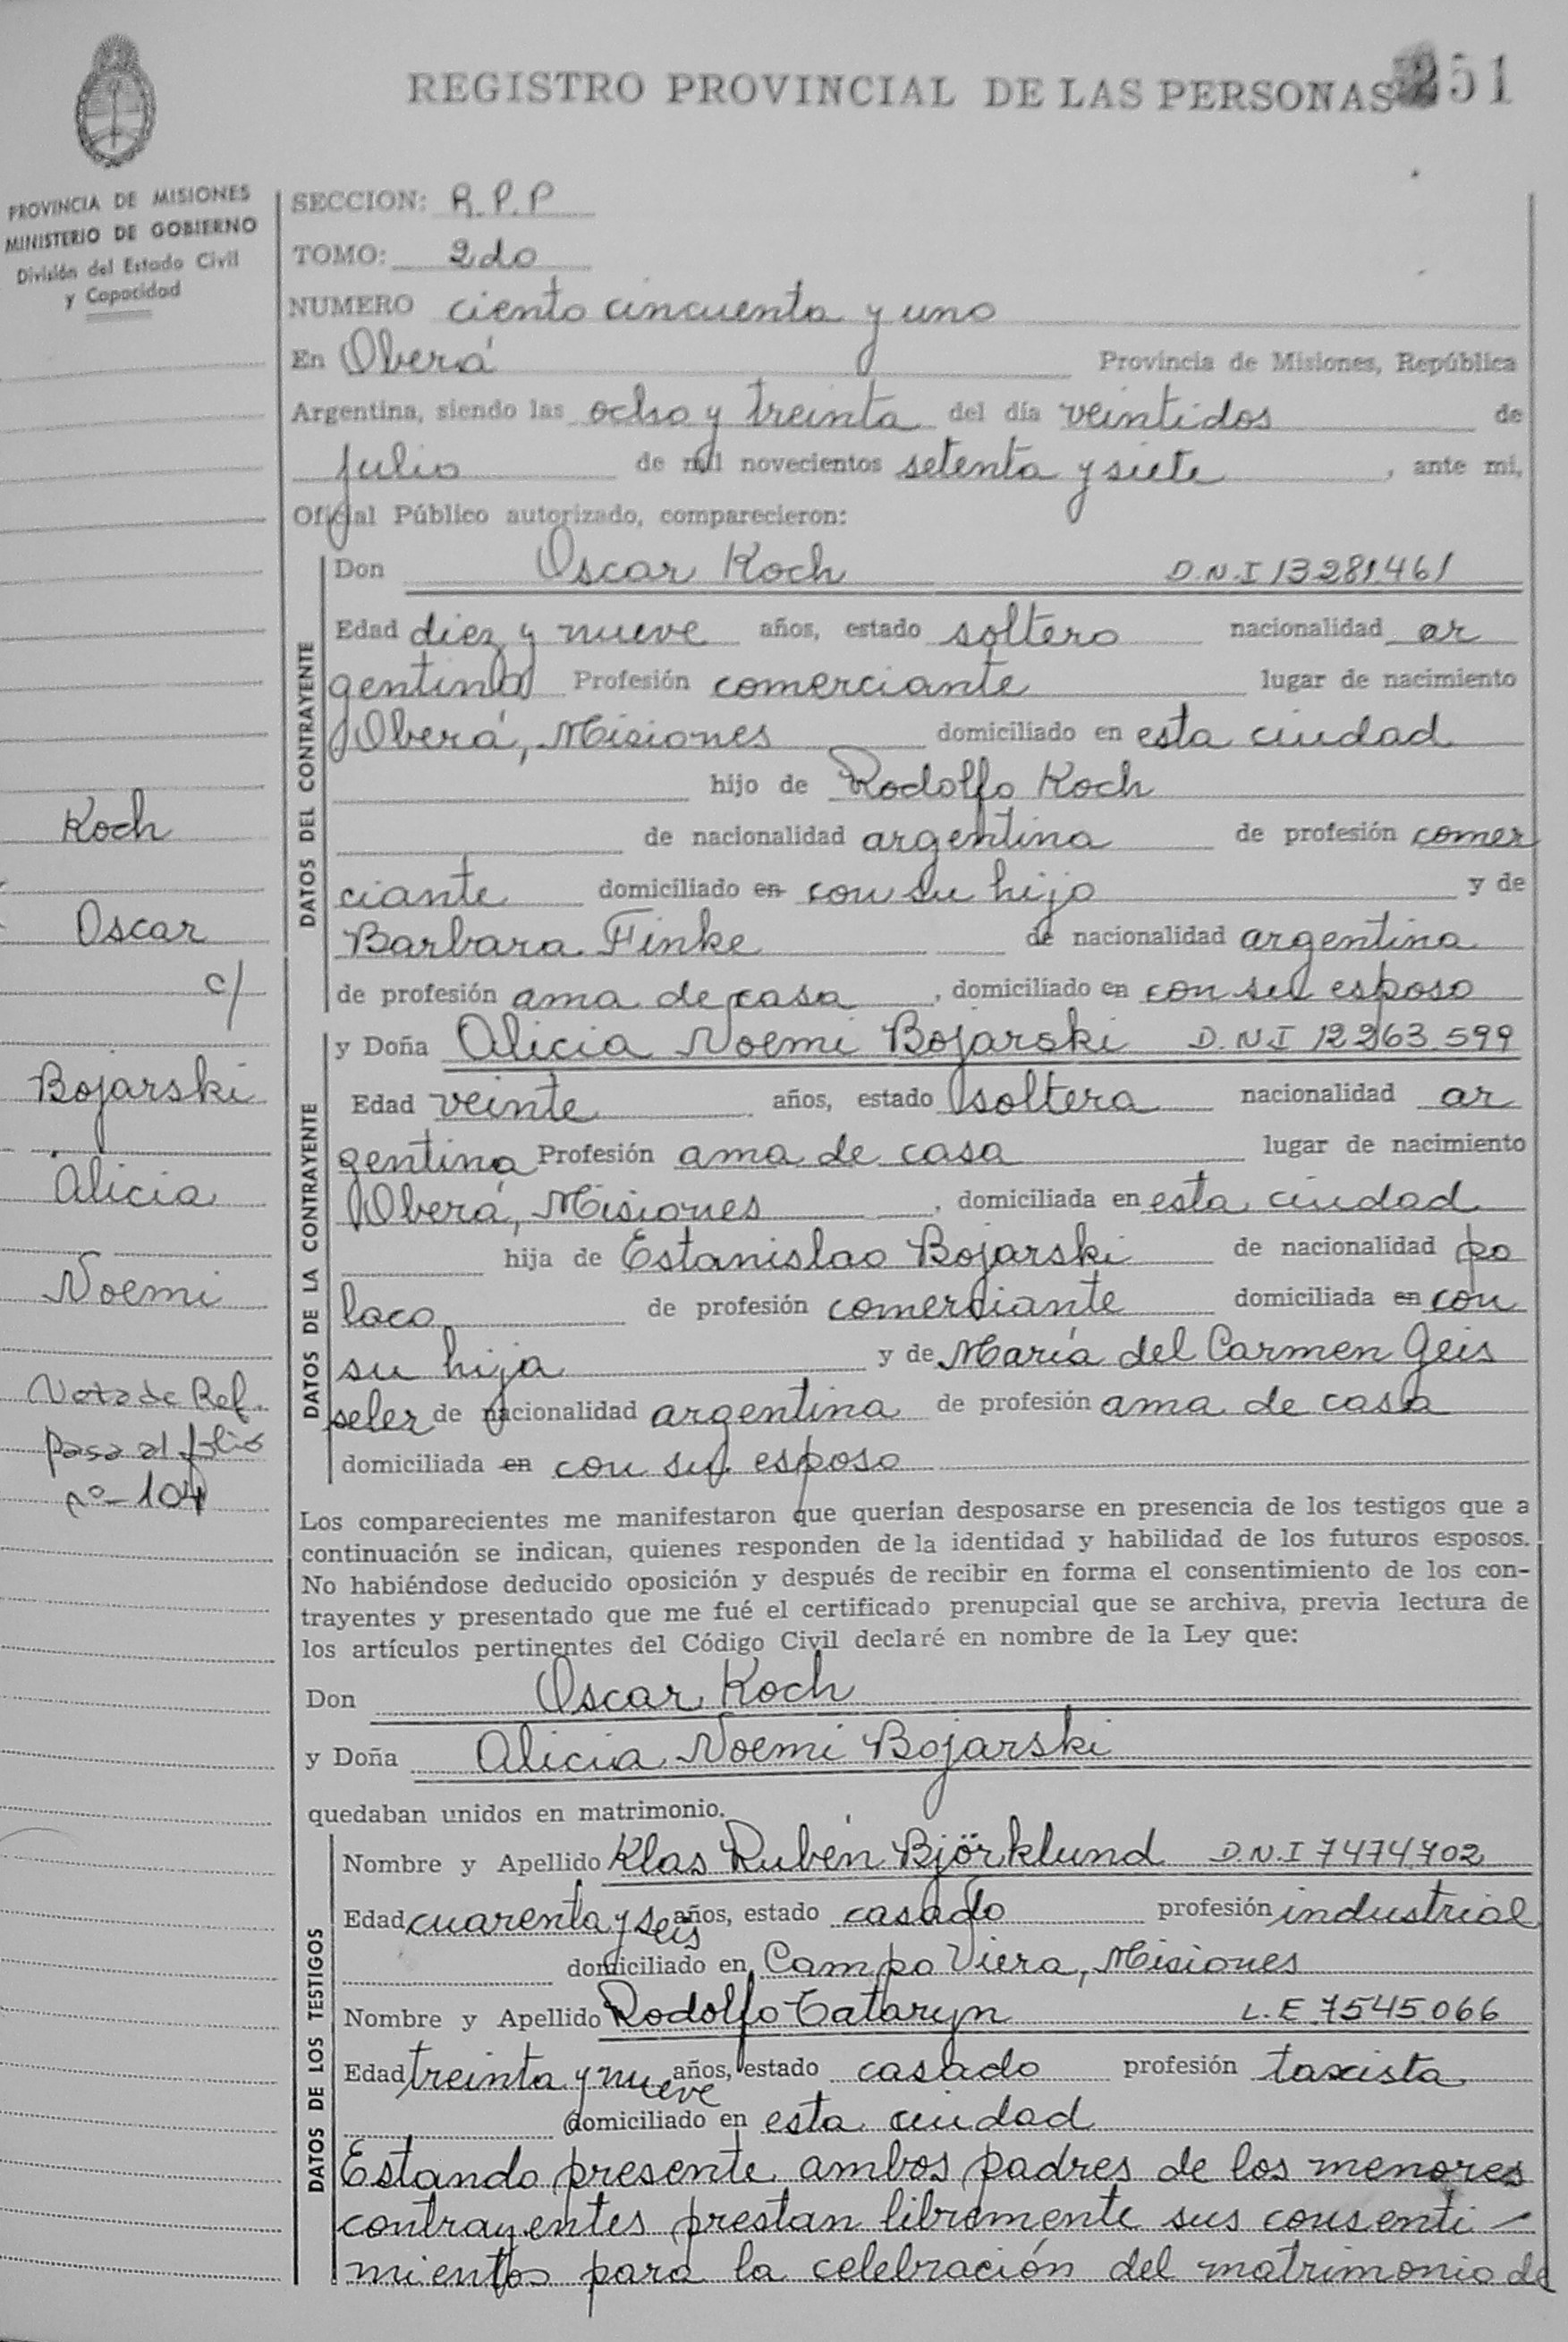 REGISTRO PROVINCIAL DE LAS PERSONAS 251
PROVINCIA DE MISIONES
MINISTERIO DE GOBIERNO
División del Estado Civil
y Capacidad
SECCION: R.P.P
TOMO: 2do
NUMERO ciento cincuenta y uno
En Oberá Provincia de Misiones, República
Argentina, siendo las ocho y treinta del día veintidos de
julio de mil novecientos setenta y siete, ante mi,
Oficial Público autorizado, comparecieron:
DATOS DEL CONTRAYENTE
Don Oscar Koch D.N.I 13281.461
Edad diez y nueve años, estado soltero nacionalidad ar
gentina Profesión comerciante lugar de nacimiento
Oberá, Misiones domiciliado en esta ciudad
hijo de Rodolfo Koch
de nacionalidad argentina de profesión comer
ciante domiciliado en con su hijo y de
Barbara Finke de nacionalidad argentina
de profesión ama de casa, domiciliado en con su esposo
DATOS DE LA CONTRAYENTE
y Doña Alicia Noemi Bojarski D.N.I 12263.599
Edad veinte años, estado soltera nacionalidad ar
gentina Profesión ama de casa lugar de nacimiento
Oberá, Misiones, domiciliada en esta ciudad
hija de Estanislao Bojarski de nacionalidad po
laco de profesión comerciante domiciliada en con
su hija y de María del Carmen Geis
seler de nacionalidad argentina de profesión ama de casa
domiciliada en con su esposo
Koch
Oscar
c/
Bojarski
Alicia
Noemi
Nota de Ref.
pasa al folio
nº-104
Los comparecientes me manifestaron que querían desposarse en presencia de los testigos que a
continuación se indican, quienes responden de la identidad y habilidad de los futuros esposos.
No habiéndose deducido oposición y después de recibir en forma el consentimiento de los con-
trayentes y presentado que me fué el certificado prenupcial que se archiva, previa lectura de
los artículos pertinentes del Código Civil declaré en nombre de la Ley que:
Don Oscar Koch
y Doña Alicia Noemi Bojarski
quedaban unidos en matrimonio.
DATOS DE LOS TESTIGOS
Nombre y Apellido Klas Rubén Björklund D.N.I 7474702
Edad cuarenta y seis años, estado casado profesión industrial
domiciliado en Campo Viera, Misiones
Nombre y Apellido Rodolfo Tataryn L.E 7545.066
Edad treinta y nueve años, estado casado profesión taxista
domiciliado en esta ciudad
Estando presente ambos padres de los menores
contrayentes prestan libremente sus consenti-
mientos para la celebración del matrimonio de